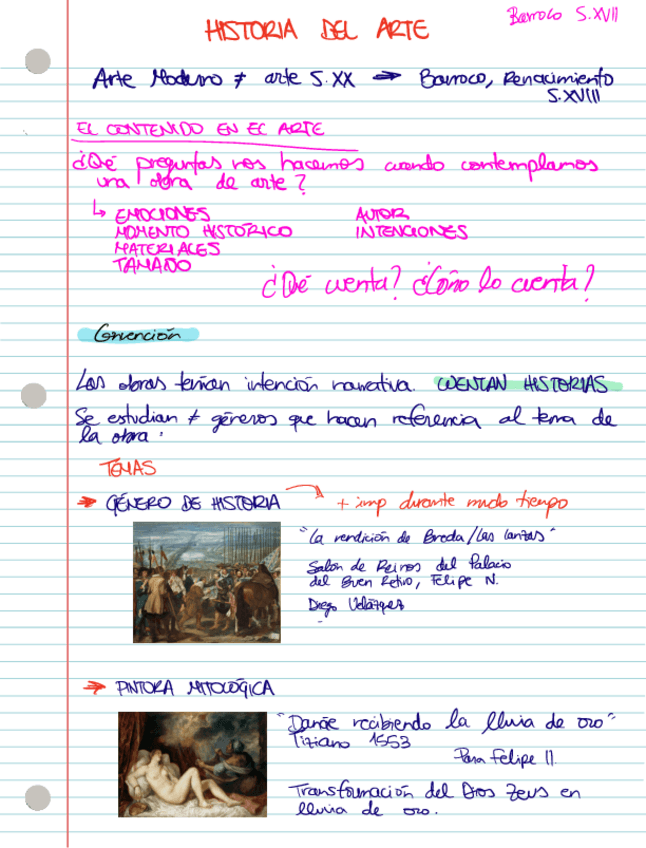 HISTORIA DEL ARTE
Barroco S.XVII
Arte Moderno ≠ arte S.XX → Barroco, Renacimiento
S.XVIII
EL CONTENIDO EN EL ARTE
¿Qué preguntas nos hacemos cuando contemplamos
una obra de arte?
↳ EMOCIONES
MOMENTO HISTÓRICO
MATERIALES
TAMAÑO
AUTOR
INTENCIONES
¿Qué cuenta? ¿Cómo lo cuenta?
Convención
Las obras tenían intención narrativa. CUENTAN HISTORIAS
Se estudian ≠ géneros que hacen referencia al tema de
la obra:
TEMAS
→ GÉNERO DE HISTORIA → + imp durante mucho tiempo
"La rendición de Breda/Las lanzas"
Salón de Reinos del Palacio
del Buen Retiro, Felipe IV.
Diego Velázquez
→ PINTURA MITOLÓGICA
"Danae recibiendo la lluvia de oro"
Tiziano 1553
Para Felipe II
Transformación del Dios Zeus en
lluvia de oro.